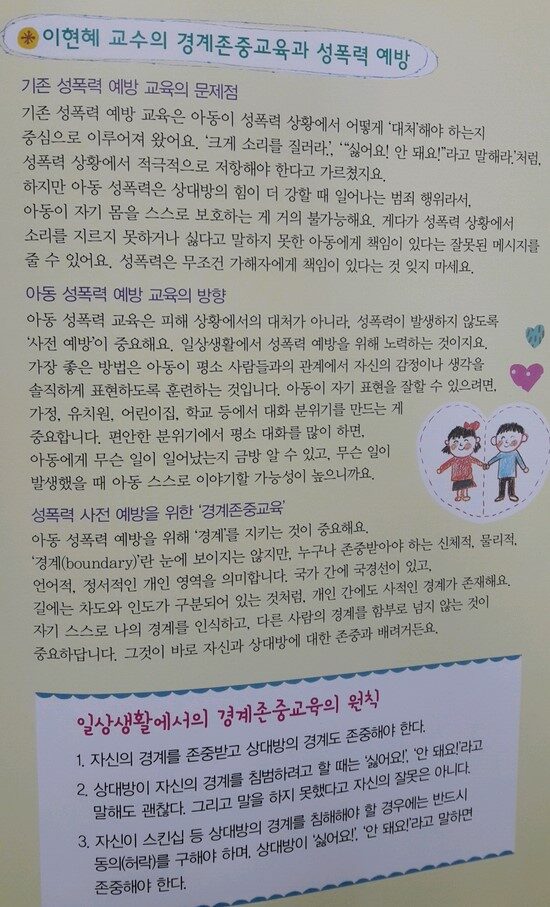 이현혜 교수의 경계존중교육과 성폭력 예방
기존 성폭력 예방 교육의 문제점
기존 성폭력 예방 교육은 아동이 성폭력 상황에서 어떻게 ‘대처’해야 하는지
중심으로 이루어져 왔어요. ‘크게 소리를 질러라.’, ‘“싫어요! 안 돼요!”라고 말해라.’처럼,
성폭력 상황에서 적극적으로 저항해야 한다고 가르쳤지요.
하지만 아동 성폭력은 상대방의 힘이 더 강할 때 일어나는 범죄 행위라서,
아동이 자기 몸을 스스로 보호하는 게 거의 불가능해요. 게다가 성폭력 상황에서
소리를 지르지 못하거나 싫다고 말하지 못한 아동에게 책임이 있다는 잘못된 메시지를
줄 수 있어요. 성폭력은 무조건 가해자에게 책임이 있다는 것 잊지 마세요.
아동 성폭력 예방 교육의 방향
아동 성폭력 교육은 피해 상황에서의 대처가 아니라, 성폭력이 발생하지 않도록
‘사전 예방’이 중요해요. 일상생활에서 성폭력 예방을 위해 노력하는 것이지요.
가장 좋은 방법은 아동이 평소 사람들과의 관계에서 자신의 감정이나 생각을
솔직하게 표현하도록 훈련하는 것입니다. 아동이 자기 표현을 잘할 수 있으려면,
가정, 유치원, 어린이집, 학교 등에서 대화 분위기를 만드는 게
중요합니다. 편안한 분위기에서 평소 대화를 많이 하면,
아동에게 무슨 일이 일어났는지 금방 알 수 있고, 무슨 일이
발생했을 때 아동 스스로 이야기할 가능성이 높으니까요.
성폭력 사전 예방을 위한 ‘경계존중교육’
아동 성폭력 예방을 위해 ‘경계’를 지키는 것이 중요해요.
‘경계(boundary)’란 눈에 보이지는 않지만, 누구나 존중받아야 하는 신체적, 물리적,
언어적, 정서적인 개인 영역을 의미합니다. 국가 간에 국경선이 있고,
길에는 차도와 인도가 구분되어 있는 것처럼, 개인 간에도 사적인 경계가 존재해요.
자기 스스로 나의 경계를 인식하고, 다른 사람의 경계를 함부로 넘지 않는 것이
중요하답니다. 그것이 바로 자신과 상대방에 대한 존중과 배려거든요.
일상생활에서의 경계존중교육의 원칙
1. 자신의 경계를 존중받고 상대방의 경계도 존중해야 한다.
2. 상대방이 자신의 경계를 침범하려고 할 때는 ‘싫어요!’, ‘안 돼요!’라고
말해도 괜찮다. 그리고 말을 하지 못했다고 자신의 잘못은 아니다.
3. 자신이 스킨십 등 상대방의 경계를 침해해야 할 경우에는 반드시
동의(허락)를 구해야 하며, 상대방이 ‘싫어요!’, ‘안 돼요!’라고 말하면
존중해야 한다.